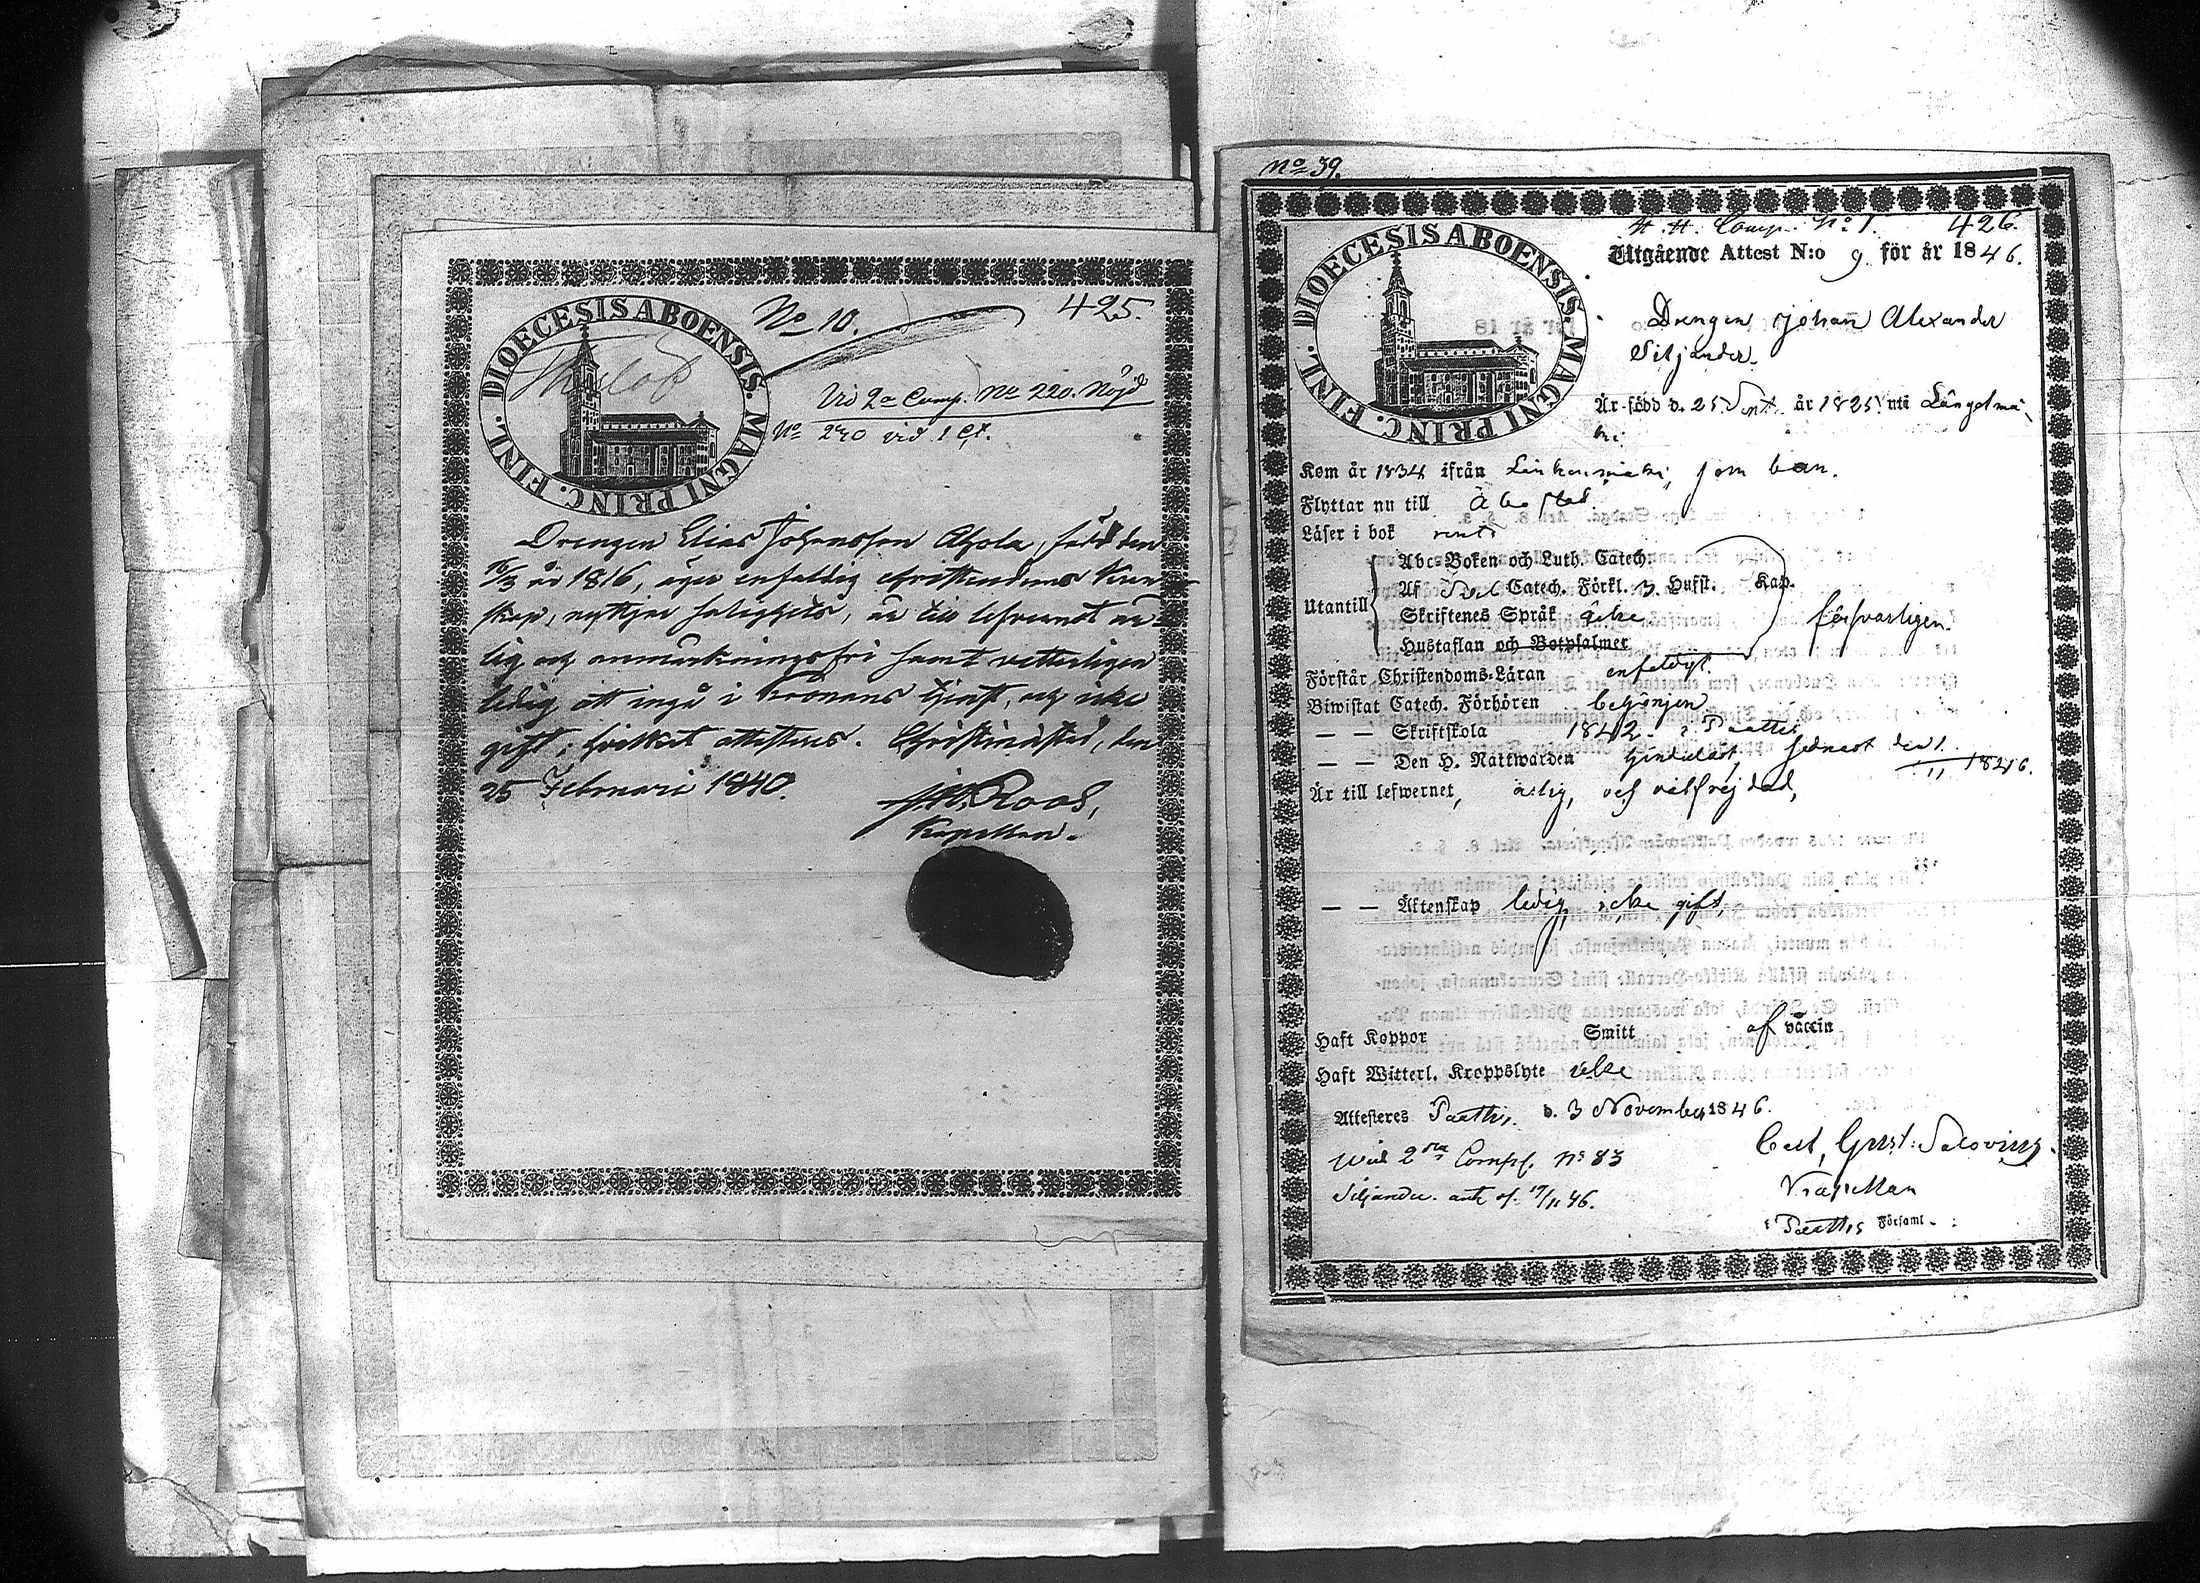 No 10.
425.
DIOECESIS ABOENSIS. MAGNI PRINC. FINL.
Vid 2a Comp. No 220. Nöjd
No 240 vid 1 Ct.
Drengen Elias Johansson Ahola, född den
16/3 år 1816, äger enfaldig christendoms kun-
skap, nyttjar salighets, är till lefvernet är-
lig och anmärkningsfri samt vetterligen
ledig att ingå i Kronans tjenst, och icke
gift; hvilket attesteras. Christinestad, den
25 Februari 1840.
Roos,
Kapellan.
No 39.
Comp. No 1.
426.
DIOECESIS ABOENSIS. MAGNI PRINC. FINL.
Utgående Attest N:o 9 för år 1846.
Drengen Johan Alexander
Siljander.
Är född d. 25 Sept. år 1825 uti Längelmä-
ki
Kom år 1834 ifrån som barn.
Flyttar nu till Åbo stad
Läser i bok rent
Utantill
Abc-Boken och Luth. Catech.
Af Catech. Förkl. 3 Hufst. Kap.
Skriftenes Språk icke
Hustaflan och Botpsalmer
försvarligen.
Förstår Christendoms-Läran enfaldigt
Biwistat Catech. Förhören började
— — Skriftskola 1842 i Paattis
— — Den H. Nattwarden sednast den 1/11 1846.
Är till lefwernet, ärlig, och välfrejdad,
— — Äktenskap ledig, icke gift,
Haft Koppor Smitt af vaccin
Haft Witterl. Kroppslyte icke
Attesteres Paattis, d. 3 November 1846.
Wid 2dra Comp. No 83
Siljander. ant. af. 19/11 46.
Carl Gust: Salovius.
Capellan
i Paattis Församl.